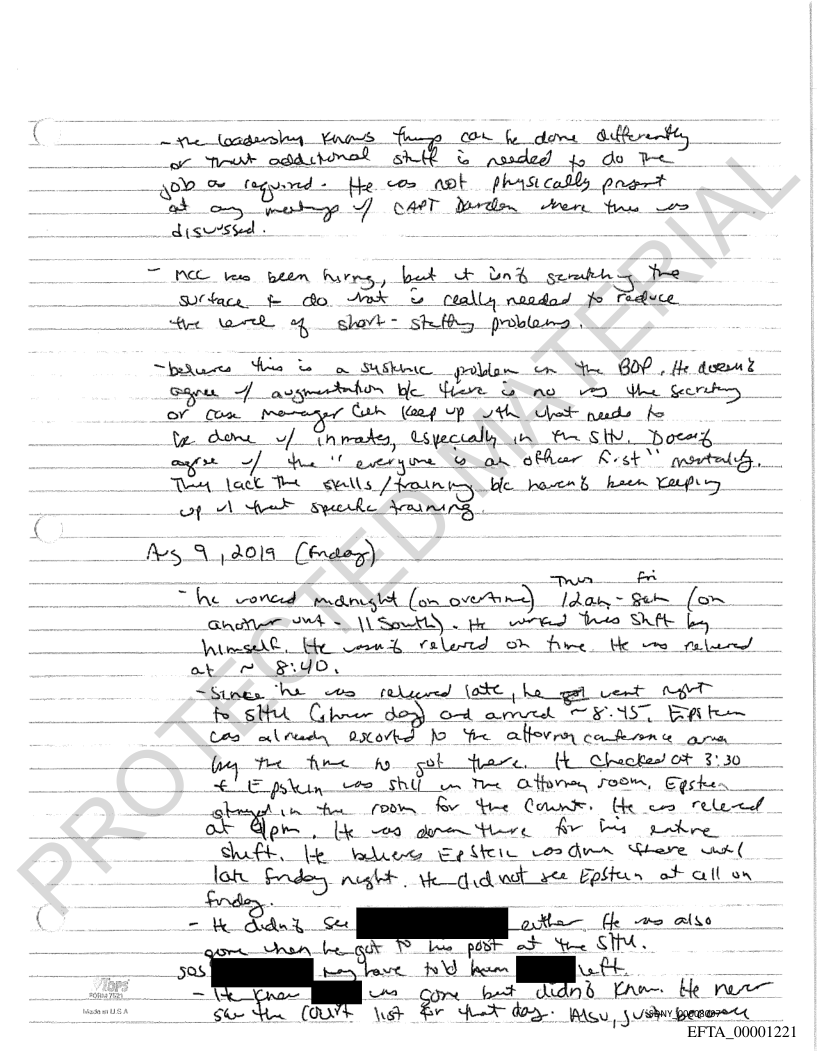 - the leadership knows things can be done differently
or that additional staff is needed to do the
job as required. He was not physically present
at any meetings w/ CAPT Darden where this was
discussed.
- MCC has been hiring, but it isn't scratching the
surface to do what is really needed to reduce
the level of short-staffing problems.
- believes this is a systemic problem in the BOP. He doesn't
agree w/ augmentation b/c there is no way the secretary
or case manager can keep up with what needs to
be done w/ inmates, especially in the SHU. Doesn't
agree w/ the "everyone is an officer first" mentality.
They lack the skills/training b/c haven't been keeping
up w/ that specific training.
Aug 9, 2019 (Friday)
Thus Fri
- he worked midnight (on overtime) 12am - 8am (on
another unit - 11 South). He worked this shift by
himself. He wasn't relieved on time. He was relieved
at ~ 8:40.
- Since he was relieved late, he went right
to SHU (8 hour day) and arrived ~ 8:45. Epstein
was already escorted to the attorney conference area
by the time he got there. He checked at 3:30
& Epstein was still in the attorney room. Epstein
stayed in the room for the count. He was relieved
at 4pm. He was down there for his entire
shift. He believes Epstein was down there until
late Friday night. He did not see Epstein at all on
Friday.
- He didn't see either. He was also
gone when he got to his post at the SHU.
SOS may have told him left.
- He knew was gone but didn't know. He never
saw the court list for that day. Also, just because
TOPS
FORM 7521
Made in U.S.A
PROTECTED MATERIAL
EFTA_00001221